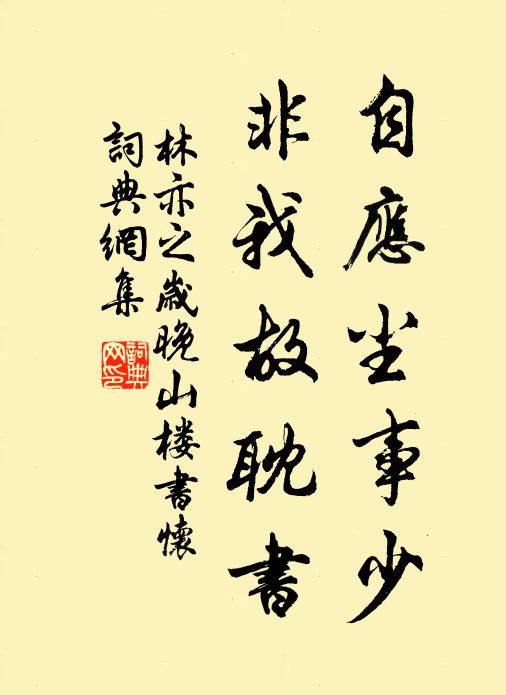 自應尘事少
非我故耽書
林亦之歲晚山楼書懷
詞典網集
詞典網印